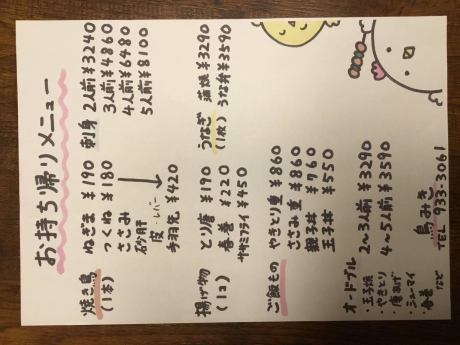 お持ち帰りメニュー
焼き鳥
(1本)
ねぎま ¥190
つくね ¥180
ささみ
砂肝
皮・レバー
手羽先 ¥420
刺身 2人前 ¥3240
3人前 ¥4860
4人前 ¥6480
5人前 ¥8100
揚げ物
(1コ)
とり唐 ¥190
春巻 ¥220
ササミフライ ¥450
うなぎ
(1枚)
蒲焼 ¥3290
うな弁 ¥3590
ご飯もの
やきとり重 ¥860
ささみ重 ¥860
親子丼 ¥760
玉子丼 ¥550
オードブル
・玉子焼
・やきとり
・唐あげ
・シューマイ
・春巻 など
2〜3人前 ¥3290
4〜5人前 ¥3090
鳥みき
TEL 933-3061